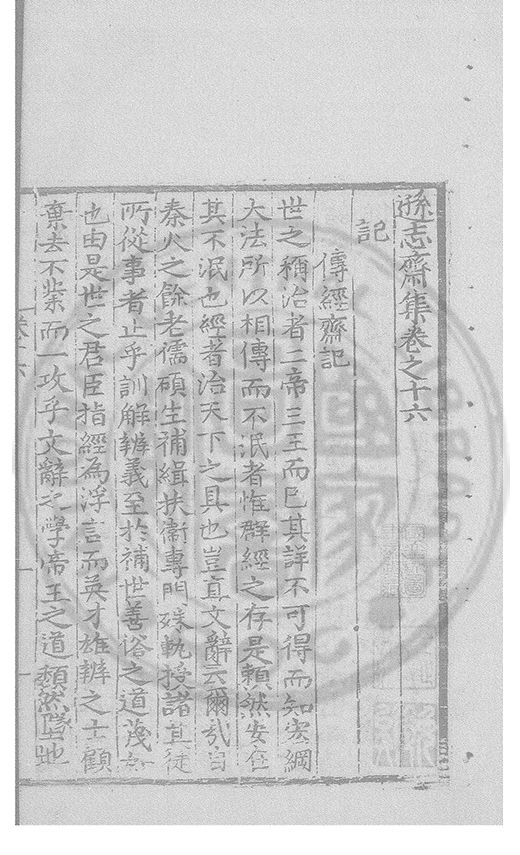 遜志齋集卷之十六
記
傳經齋記
世之稱治者二帝三王而已其詳不可得而知宏綱
大法所以相傳而不泯者惟群經之存是賴然安在
其不泯也經者治天下之具也豈直文辭云爾哉自
秦火之餘老儒碩生補緝扶衛專門殊軌授諸其徒
所從事者止乎訓解辨義至於補世善俗之道蔑如
也由是世之君臣指經為浮言而英才雄辨之士顧
棄去不業而一攻乎文辭之學帝王之道頹然墜地